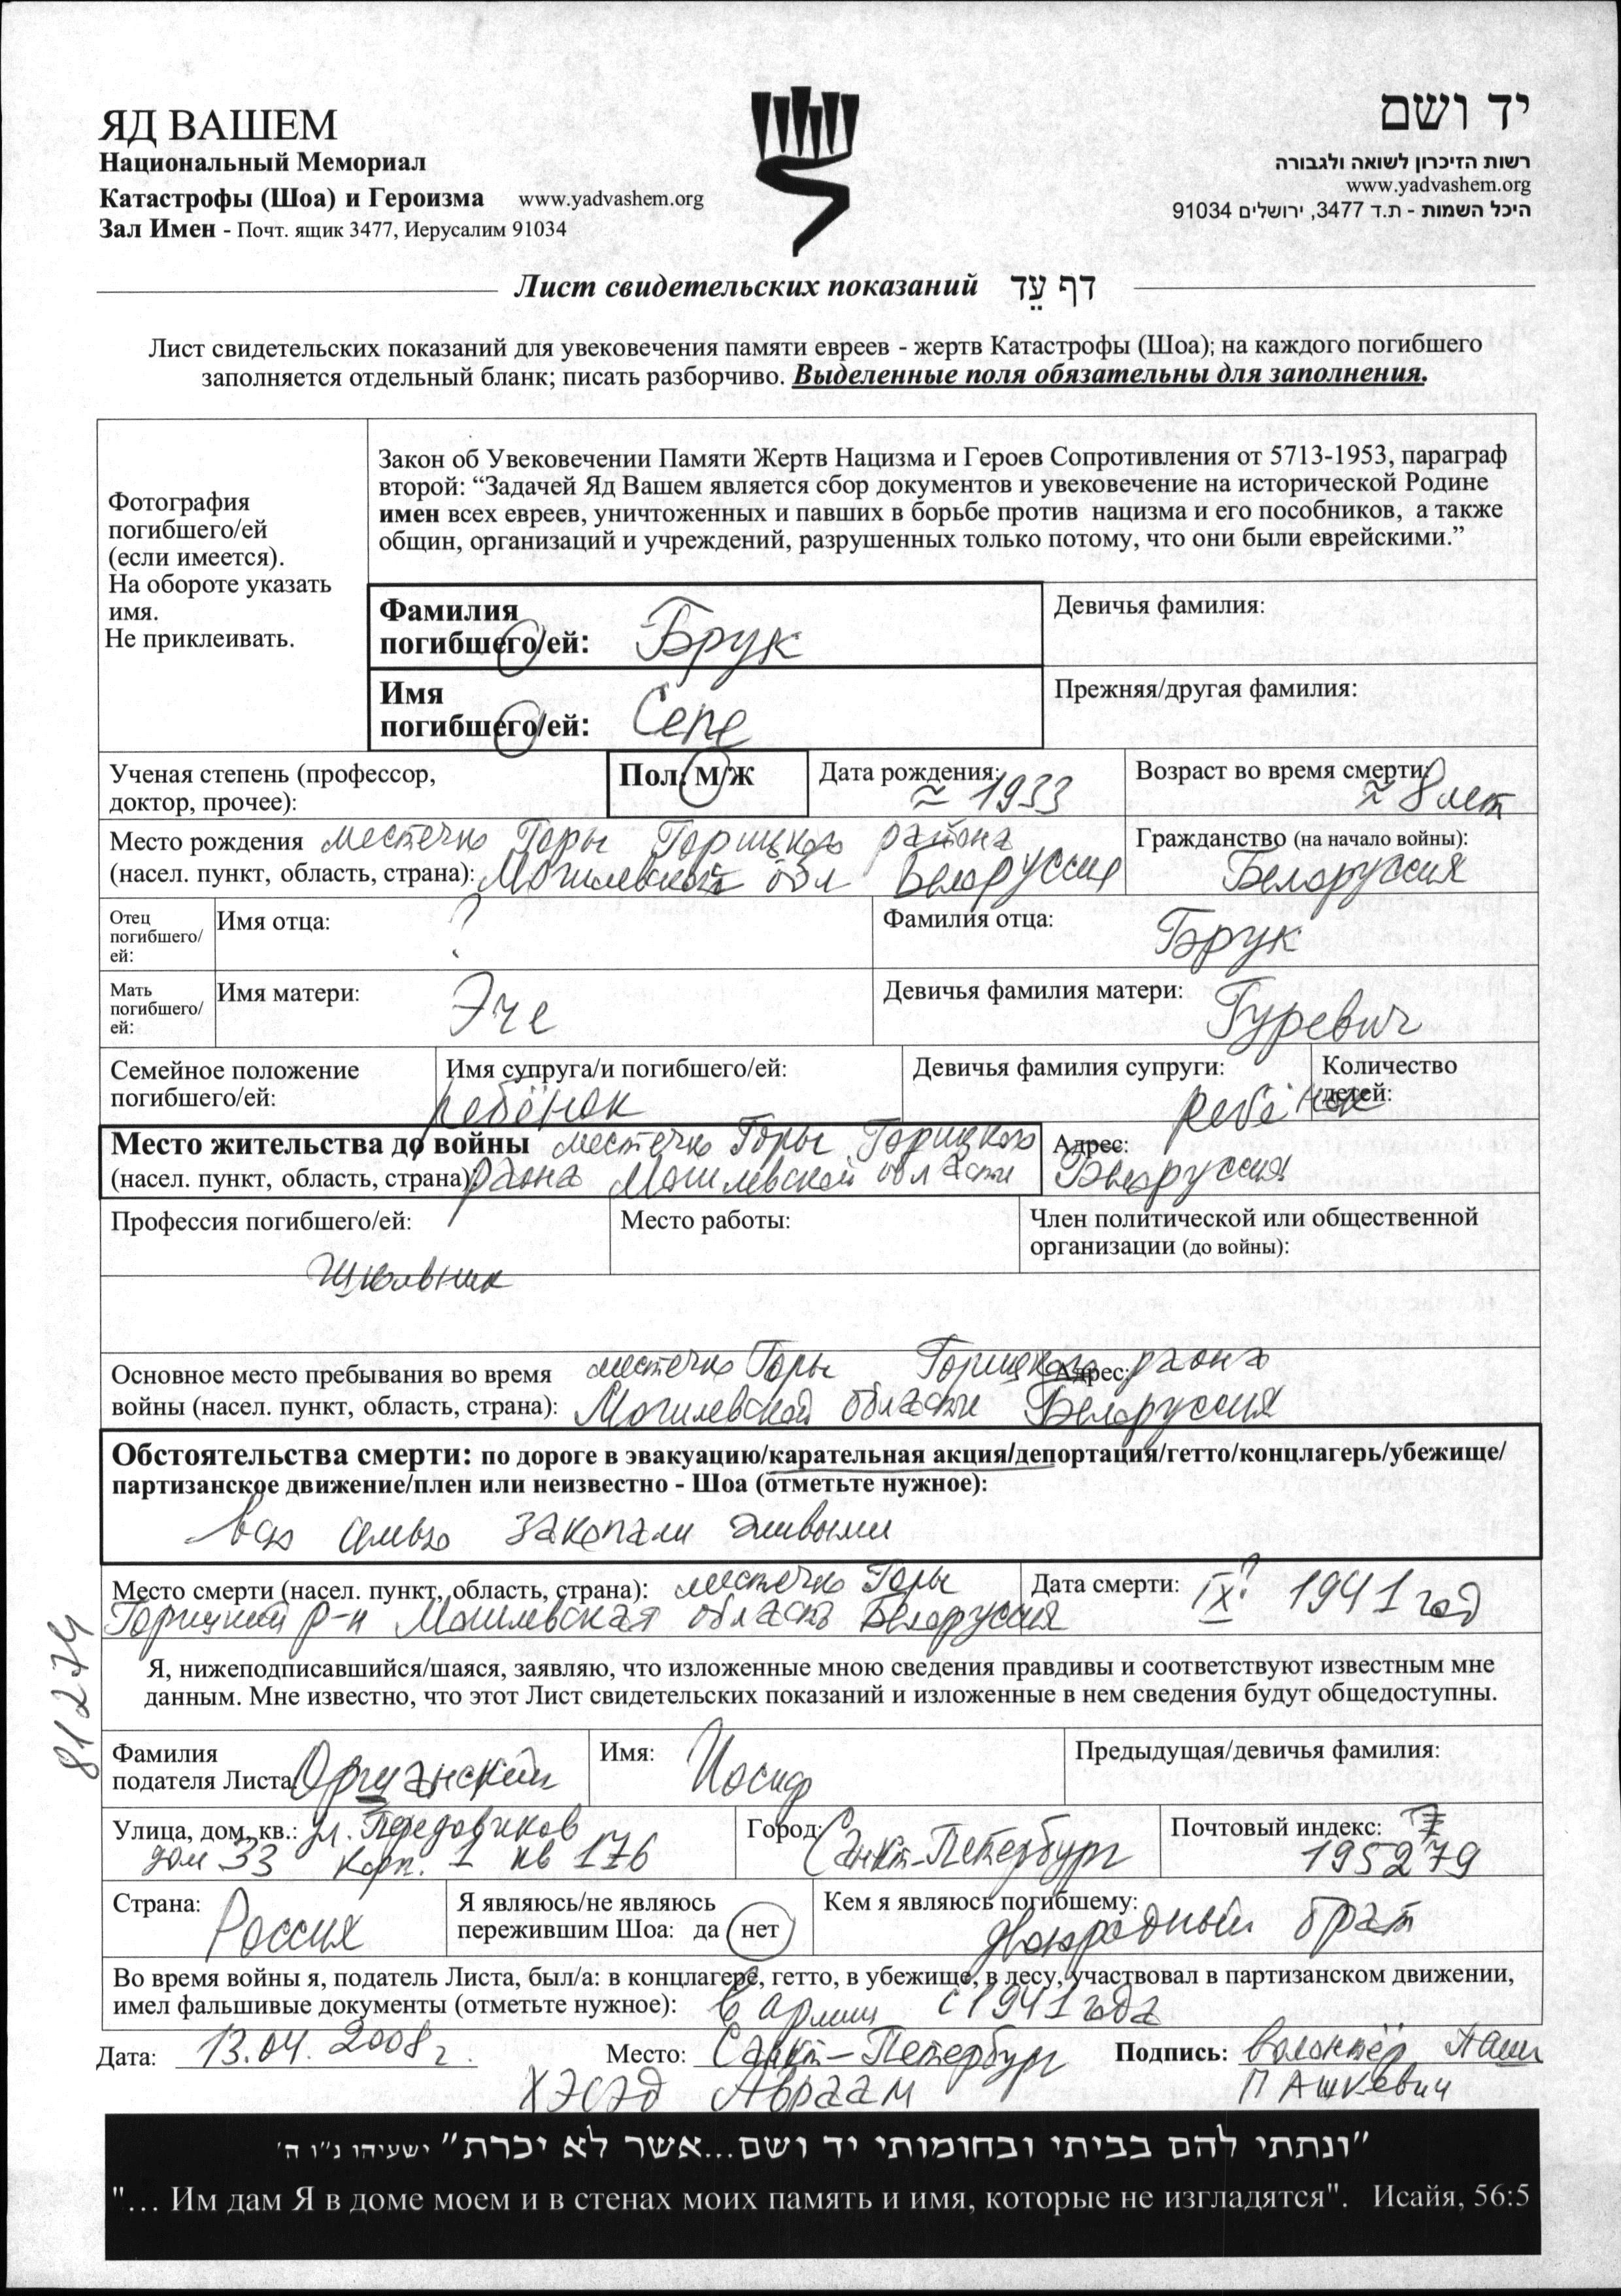 ЯД ВАШЕМ
Национальный Мемориал
Катастрофы (Шоа) и Героизма www.yadvashem.org
Зал Имен - Почт. ящик 3477, Иерусалим 91034
יד ושם
רשות הזיכרון לשואה ולגבורה
www.yadvashem.org
היכל השמות - ת.ד 3477, ירושלים 91034
Лист свидетельских показаний דף עֵד
Лист свидетельских показаний для увековечения памяти евреев - жертв Катастрофы (Шоа); на каждого погибшего
заполняется отдельный бланк; писать разборчиво. Выделенные поля обязательны для заполнения.
Фотография
погибшего/ей
(если имеется).
На обороте указать
имя.
Не приклеивать.
Закон об Увековечении Памяти Жертв Нацизма и Героев Сопротивления от 5713-1953, параграф
второй: “Задачей Яд Вашем является сбор документов и увековечение на исторической Родине
имен всех евреев, уничтоженных и павших в борьбе против нацизма и его пособников, а также
общин, организаций и учреждений, разрушенных только потому, что они были еврейскими.”
Фамилия
погибшего/ей: Брук
Девичья фамилия:
Имя
погибшего/ей: Сепе
Прежняя/другая фамилия:
Ученая степень (профессор,
доктор, прочее):
Пол: М/Ж
Дата рождения:
≈ 1933
Возраст во время смерти:
≈ 8 лет
Место рождения местечко Горы Горицкого района
(насел. пункт, область, страна): Могилевской обл Белоруссия
Гражданство (на начало войны):
Белоруссия
Отец
погибшего/
ей:
Имя отца: ?
Фамилия отца: Брук
Мать
погибшего/
ей:
Имя матери: Эче
Девичья фамилия матери: Гуревич
Семейное положение
погибшего/ей:
Имя супруга/и погибшего/ей:
ребёнок
Девичья фамилия супруги:
Количество
детей:
ребёнок
Место жительства до войны местечко Горы Горицкого
(насел. пункт, область, страна): раона Могилевской области
Адрес:
Белоруссия
Профессия погибшего/ей:
школьник
Место работы:
Член политической или общественной
организации (до войны):
Основное место пребывания во время местечко Горы Горицкого раона
Адрес:
войны (насел. пункт, область, страна): Могилевской области Белоруссия
Обстоятельства смерти: по дороге в эвакуацию/карательная акция/депортация/гетто/концлагерь/убежище/
партизанское движение/плен или неизвестно - Шоа (отметьте нужное):
всю семью закопали живыми
Место смерти (насел. пункт, область, страна): местечко Горы
Горицкий р-н Могилевская область Белоруссия
Дата смерти: IX? 1941 год
81274
Я, нижеподписавшийся/шаяся, заявляю, что изложенные мною сведения правдивы и соответствуют известным мне
данным. Мне известно, что этот Лист свидетельских показаний и изложенные в нем сведения будут общедоступны.
Фамилия
подателя Листа:
Имя: Иосиф
Предыдущая/девичья фамилия:
Улица, дом, кв.: ул. Передовиков
дом 33 корп. 1 кв 176
Город: Санкт-Петербург
Почтовый индекс:
195279
Страна: Россия
Я являюсь/не являюсь
пережившим Шоа: да нет
Кем я являюсь погибшему:
двоюродный брат
Во время войны я, податель Листа, был/а: в концлагере, гетто, в убежище, в лесу, участвовал в партизанском движении,
имел фальшивые документы (отметьте нужное): в армии с 1941 года
Дата: 13.04.2008 г. Место: Санкт-Петербург Подпись: волонтёр
ХЭСЭД Авраам Пашкевич
"ונתתי להם בביתי ובחומותי יד ושם...אשר לא יכרת" ישעיהו נ"ו ה'
"... Им дам Я в доме моем и в стенах моих память и имя, которые не изгладятся". Исайя, 56:5